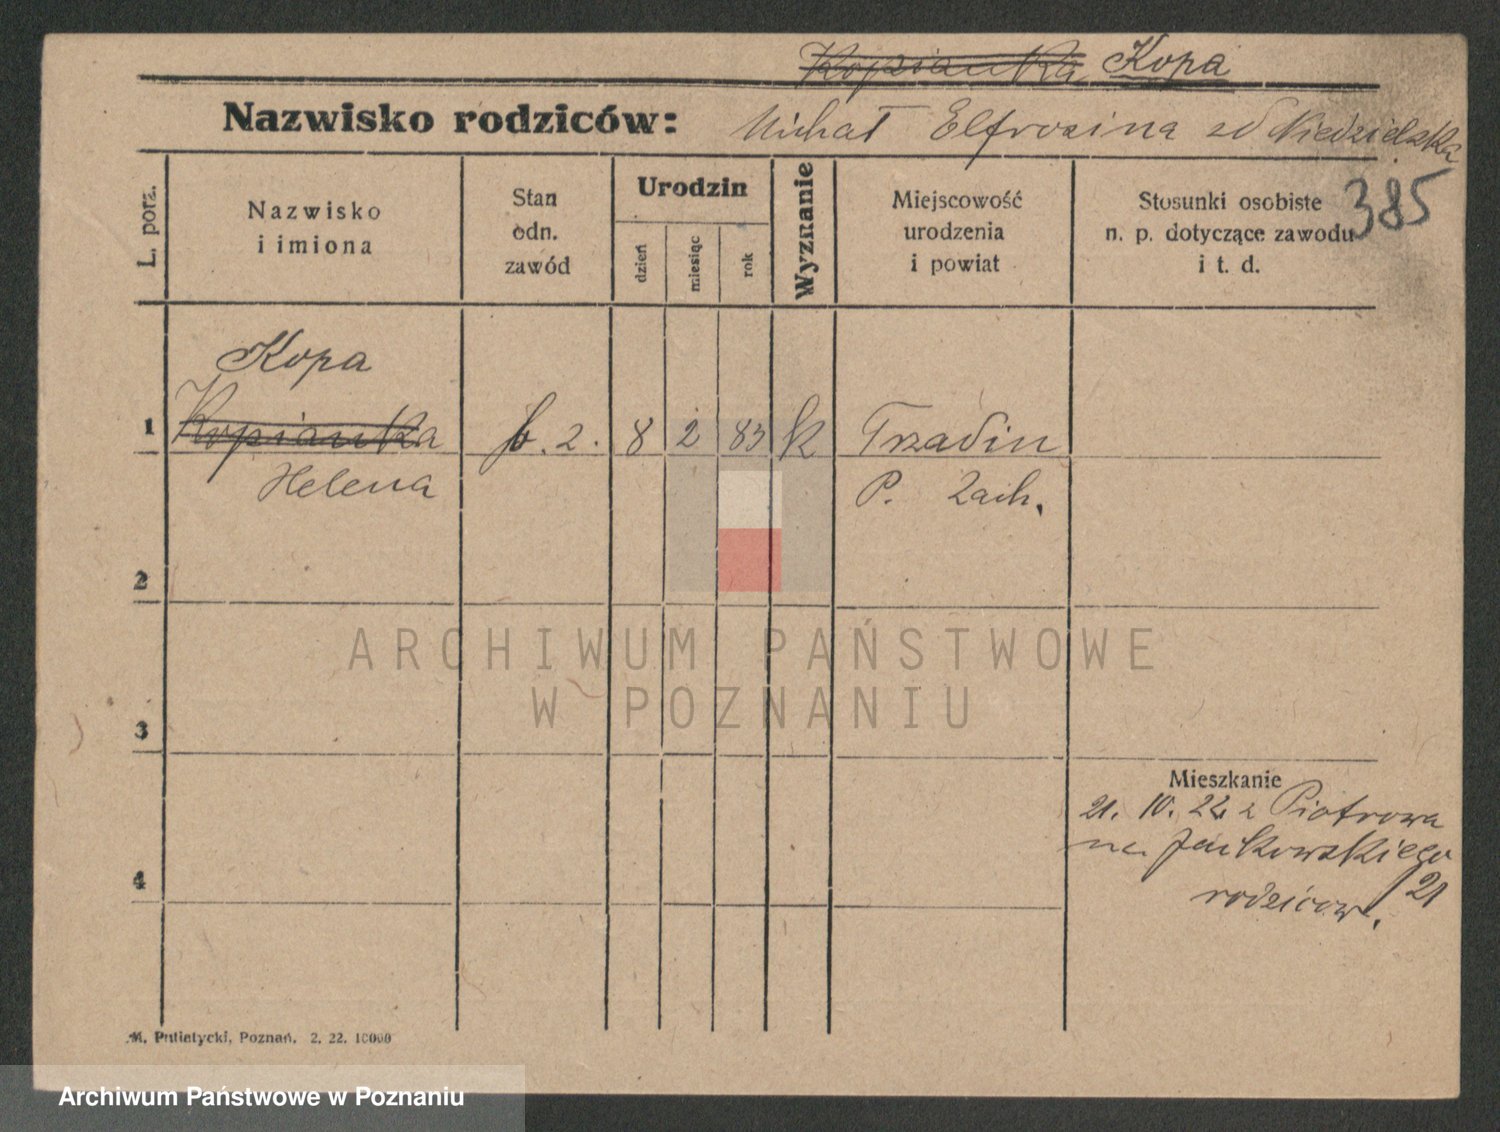 Kopianka Kopa
Nazwisko rodziców: Michał Elfrozina zd Niedzielska
L. porz.
Nazwisko
i imiona
Stan
odn.
zawód
Urodzin
dzień
miesiąc
rok
Wyznanie
Miejscowość
urodzenia
i powiat
Stosunki osobiste
n. p. dotyczące zawodu
i t. d.
385
Kopa
1 Kopianka b. z. 8 2 83 k
Helena P. Zach.
2
3
Mieszkanie
21. 10. 22. z Piotrowa
na Jackowskiego
21
rodziców.
4
M. Putiatycki, Poznań. 2. 22. 10000
ARCHIWUM PAŃSTWOWE
W POZNANIU
Archiwum Państwowe w Poznaniu